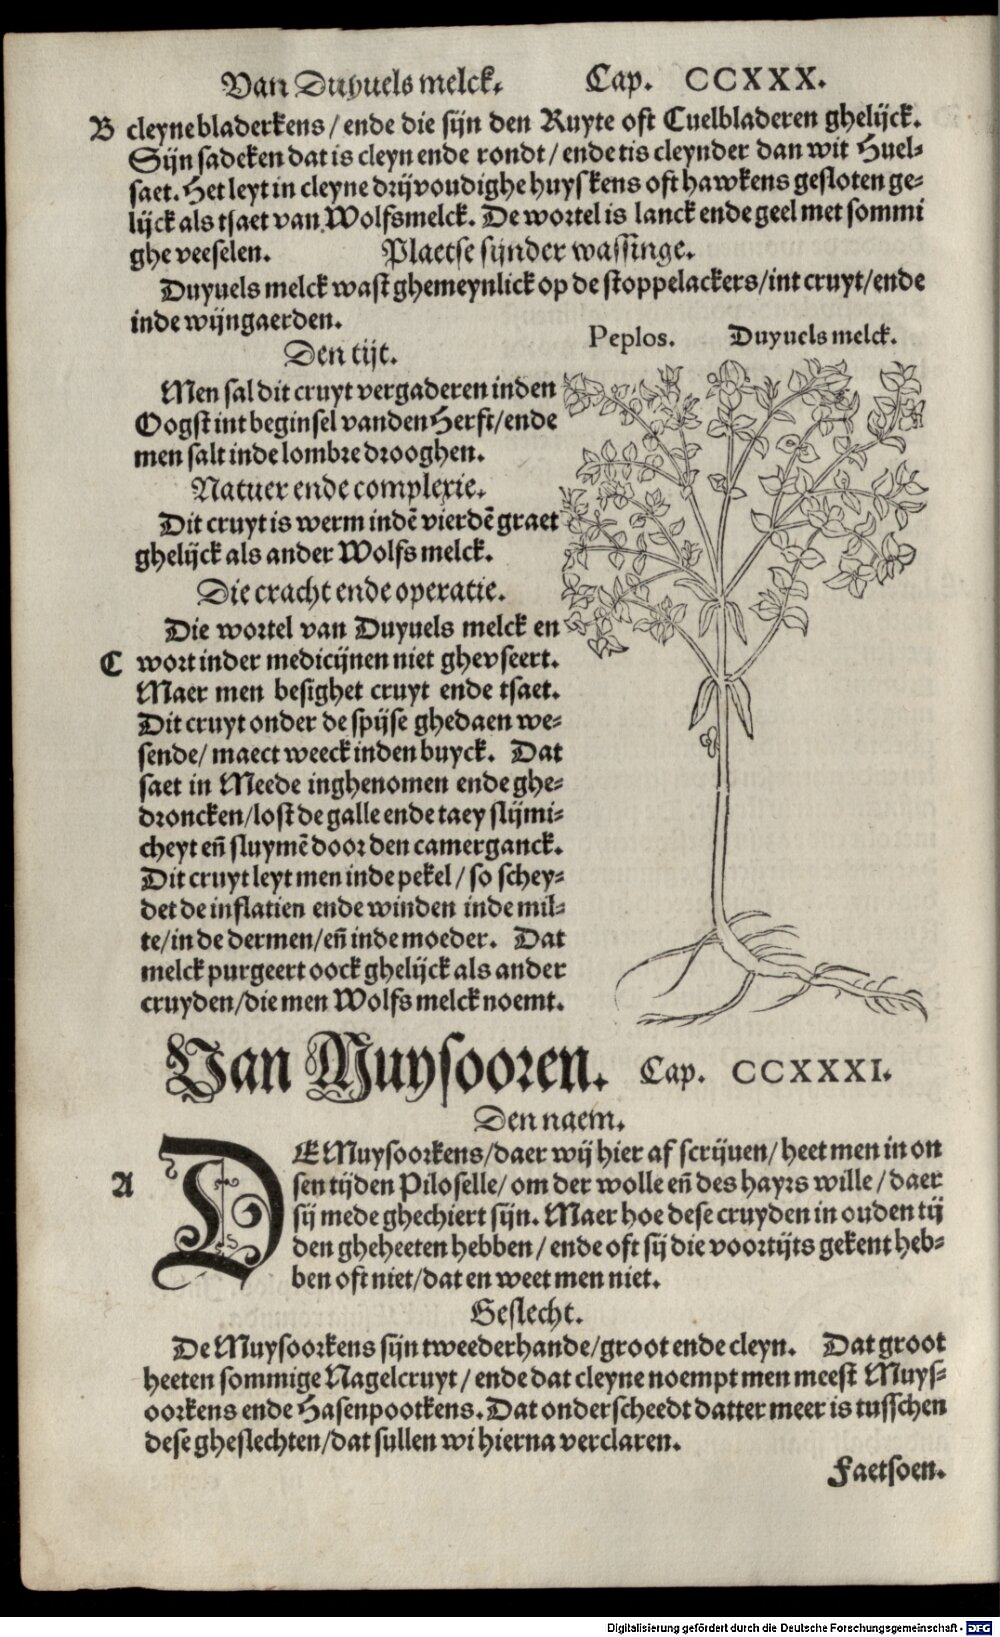 Van Duyuels melck. Cap. CCXXX.
B cleyne bladerkens / ende die sijn den Ruyte oft Cuelbladeren ghelijck.
Sijn sadeken dat is cleyn ende rondt / ende tis cleynder dan wit Huel-
saet. Het leyt in cleyne drijvoudighe huyskens oft hawkens gesloten ge-
lijck als tsaet van Wolfsmelck. De wortel is lanck ende geel met sommi
ghe veeselen. Plaetse sijnder wassinge.
Duyuels melck wast ghemeynlick op de stoppelackers/int cruyt/ende
inde wijngaerden.
Peplos. Duyuels melck.
Den tijt.
Men sal dit cruyt vergaderen inden
Oogst int beginsel vanden Herfst/ende
men salt inde lombre drooghen.
Natuer ende complexie.
Dit cruyt is werm indē vierdē graet
ghelijck als ander Wolfs melck.
Die cracht ende operatie.
Die wortel van Duyuels melck en
C wort inder medicijnen niet ghevseert.
Maer men besighet cruyt ende tsaet.
Dit cruyt onder de spijse ghedaen we-
sende/ maect weeck inden buyck. Dat
saet in Meede inghenomen ende ghe-
droncken/lost de galle ende taey slijmi-
cheyt eñ sluymē door den camerganck.
Dit cruyt leyt men inde pekel / so schey-
det de inflatien ende winden inde mil-
te/in de dermen/eñ inde moeder. Dat
melck purgeert oock ghelijck als ander
cruyden/die men Wolfs melck noemt.
Van Muysooren. Cap. CCXXXI.
Den naem.
A DE Muysoorkens/daer wij hier af scrijuen/ heet men in on
sen tijden Piloselle/ om der wolle eñ des hayrs wille / daer
sij mede ghechiert sijn. Maer hoe dese cruyden in ouden tij
den gheheeten hebben / ende oft sij die voortijts gekent heb-
ben oft niet/dat en weet men niet.
Geslecht.
De Muysoorkens sijn tweederhande/groot ende cleyn. Dat groot
heeten sommige Nagelcruyt / ende dat cleyne noempt men meest Muys-
oorkens ende Hasenpootkens. Dat onderscheedt datter meer is tusschen
dese gheslechten/dat sullen wi hierna verclaren.
Faetsoen.
Digitalisierung gefördert durch die Deutsche Forschungsgemeinschaft - DFG